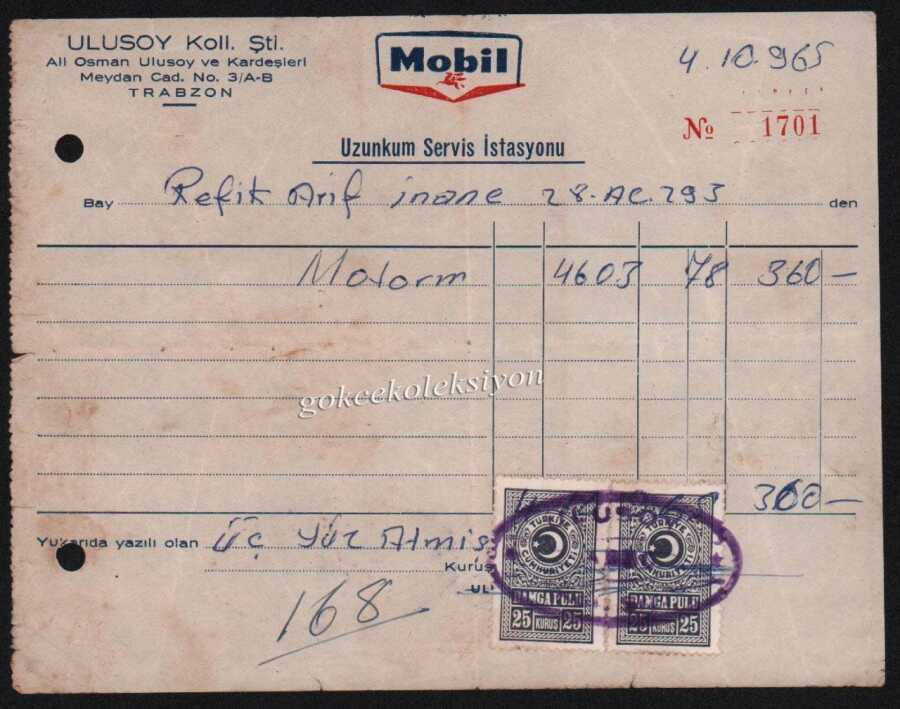 ULUSOY Koll. Şti.
Ali Osman Ulusoy ve Kardeşleri
Meydan Cad. No. 3/A-B
TRABZON
Mobil
4.10.965
№ 1701
Uzunkum Servis İstasyonu
Bay Refik Arif inanc 28.AC.293 den
Motorın 4603 78 360 —
gokcekoleksiyon
360 —
Yukarıda yazılı olan Üç Yüz Atmiş
Kuruş
UL
168
TÜRKİYE CUMHURİYETİ
DAMGA PULU
25 KURUŞ 25
TÜRKİYE CUMHURİYETİ
DAMGA PULU
25 KURUŞ 25